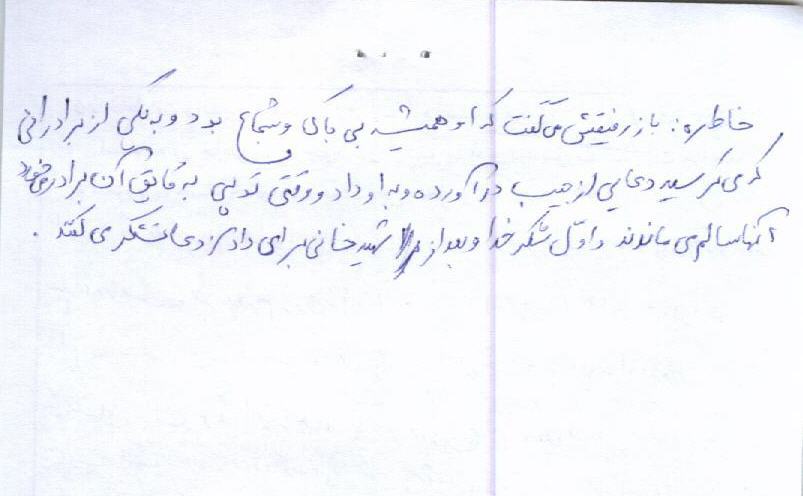 خاطره: باز رفیقش می گفت که او همیشه بی باک و شجاع بود و به یکی از برادرانی
که می ترسید دعایی از جیب در آورده و به او داد و وقتی توپی به قایق آن برادر می خورد
آنها سالم می مانوند و اوّل شکر خدا و بعد از شهید خانی برای دادن دعا تشکر می کند .